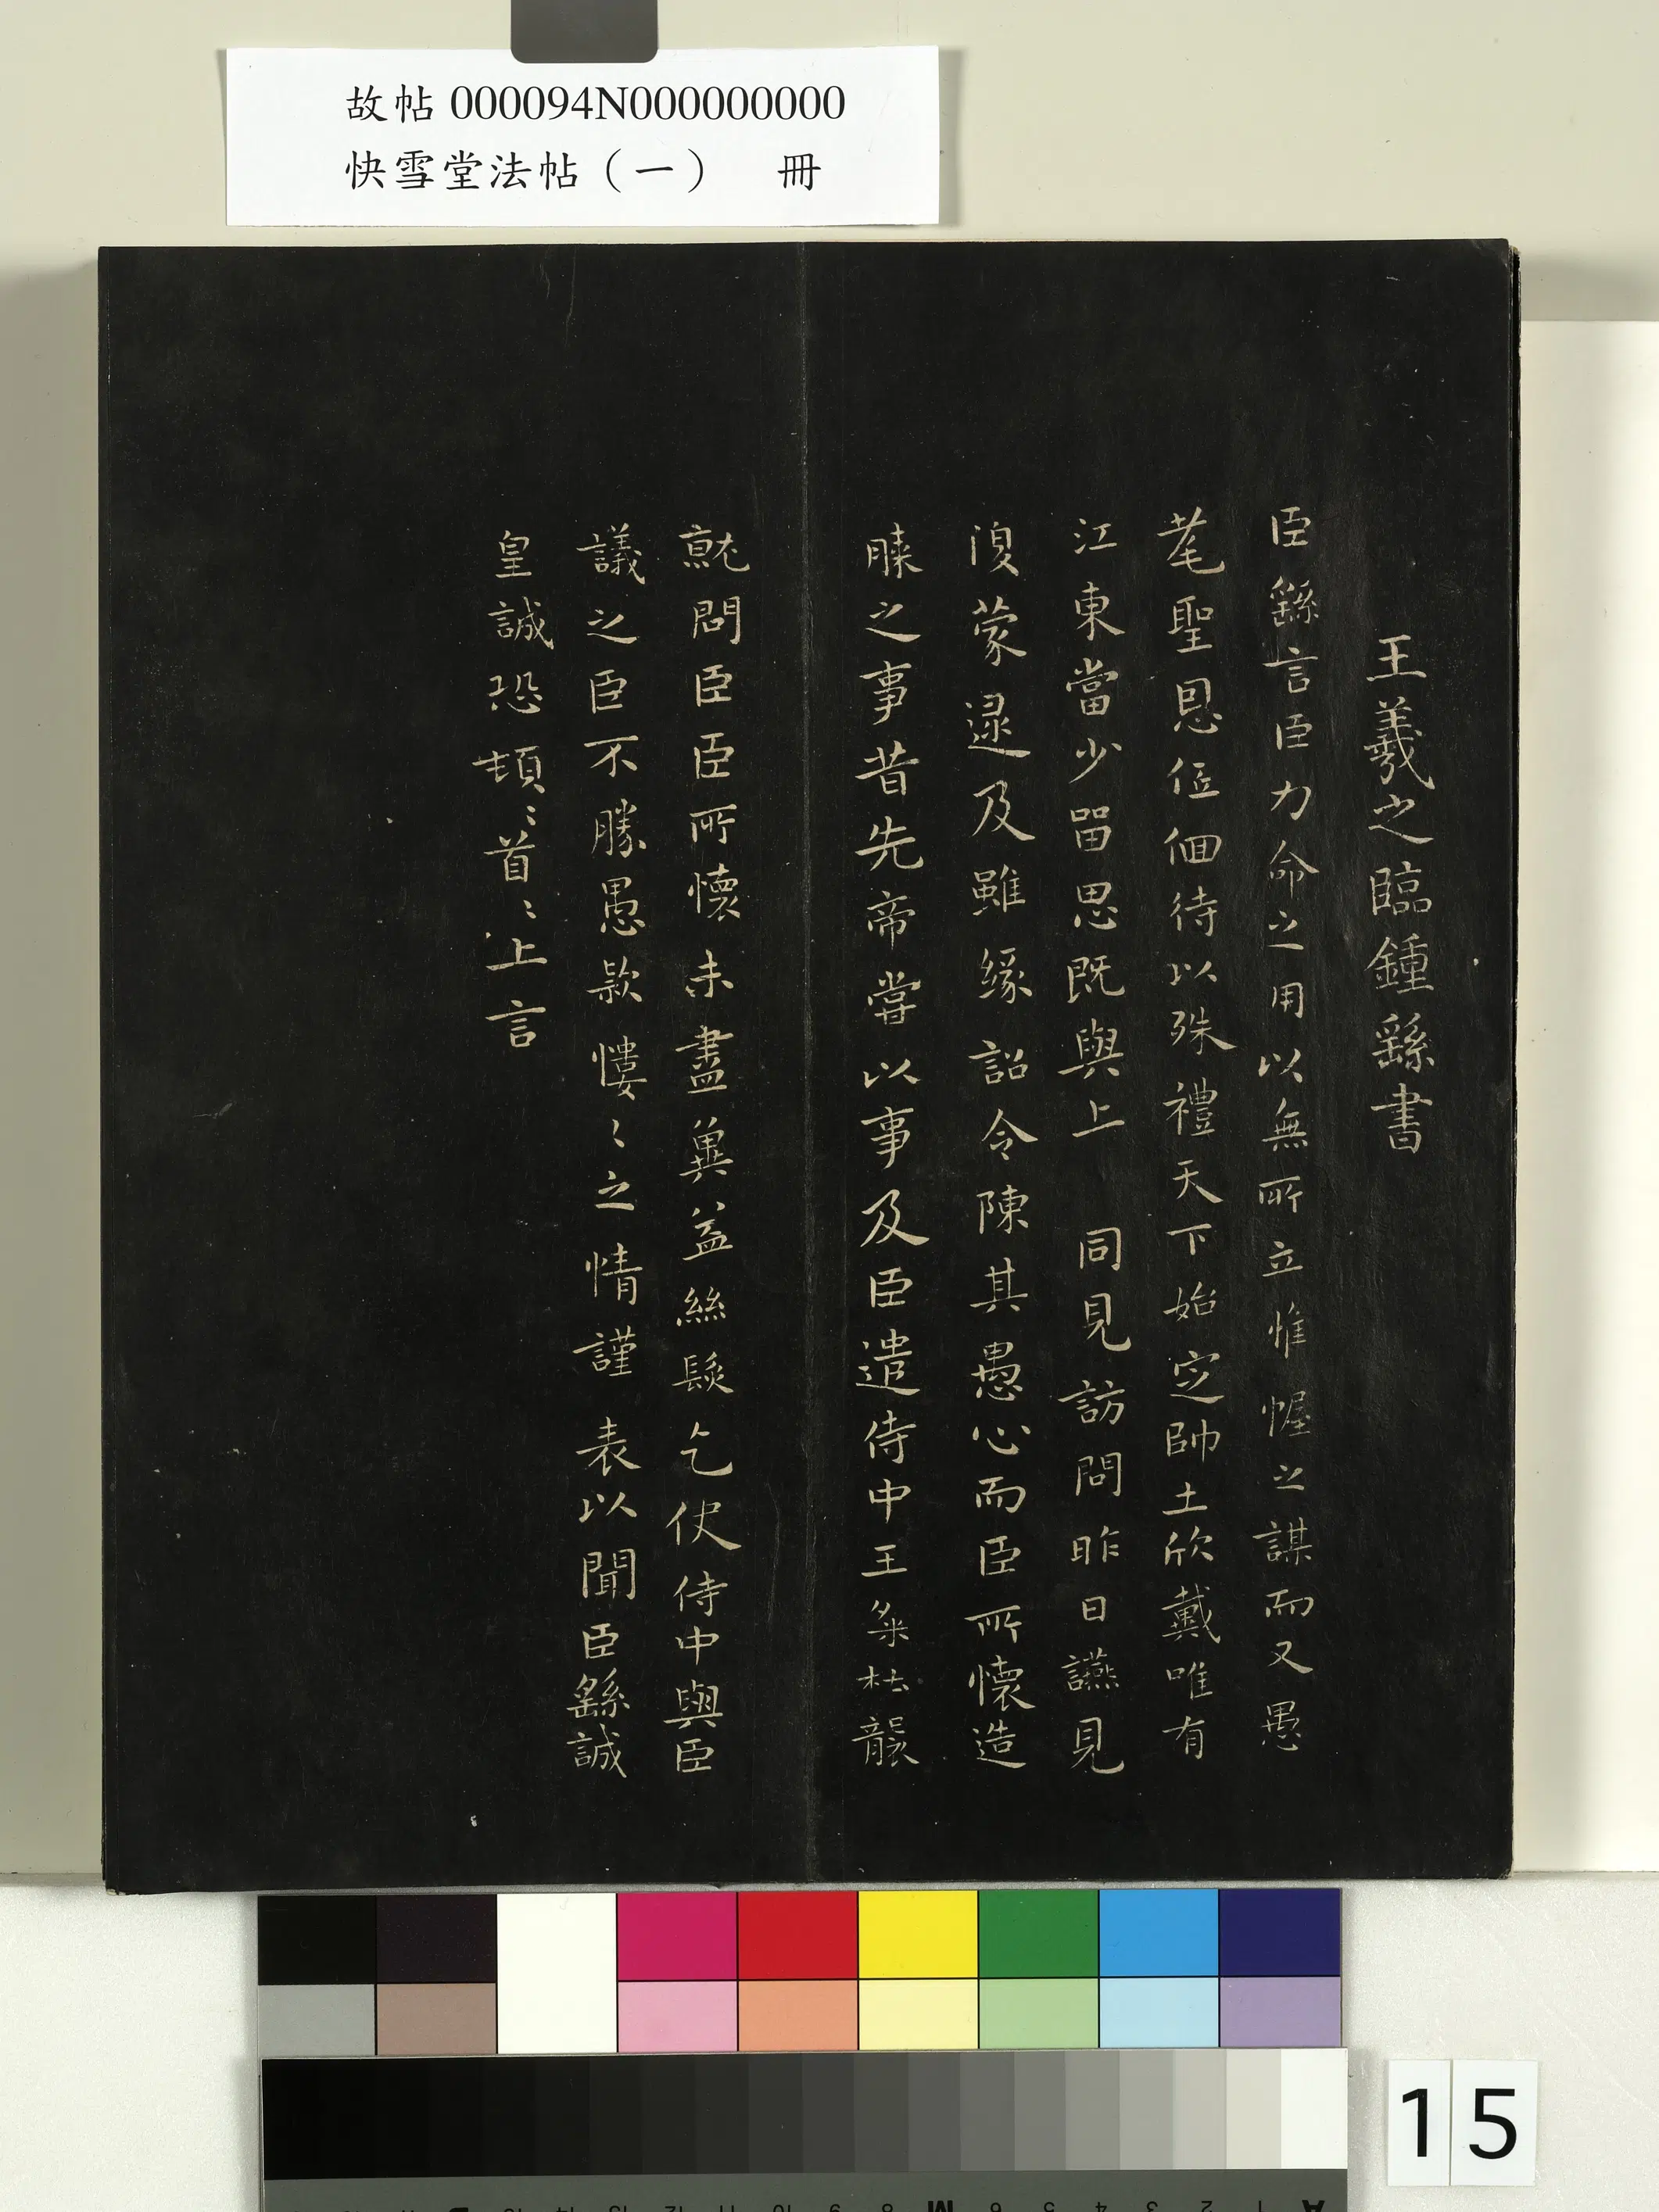 故帖 000094N000000000
快雪堂法帖（一） 冊
王羲之臨鍾繇書
臣繇言臣力命之用以無所立惟幄之謀而又愚
耄聖恩低佪待以殊禮天下始定帥土欣戴唯有
江東當少留思既與上 同見訪問昨日讌見
復蒙逮及雖緣詔令陳其愚心而臣所懷造
膝之事昔先帝嘗以事及臣遣侍中王粲杜襲
就問臣臣所懷未盡冀益絲髮乞使侍中與臣
議之臣不勝愚款慺〻之情謹 表以聞臣繇誠
皇誠恐頓〻首〻上言
15